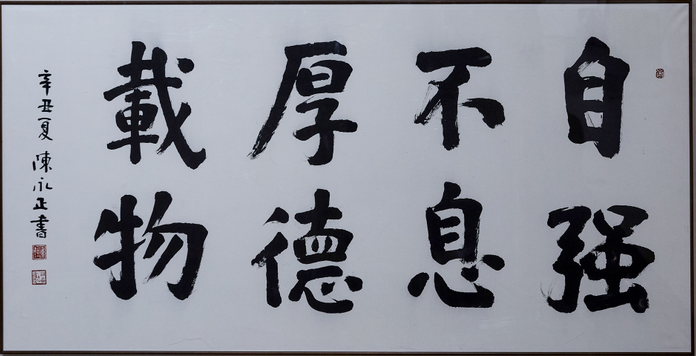 自强
不息
厚德
載物
辛丑夏陳永正書